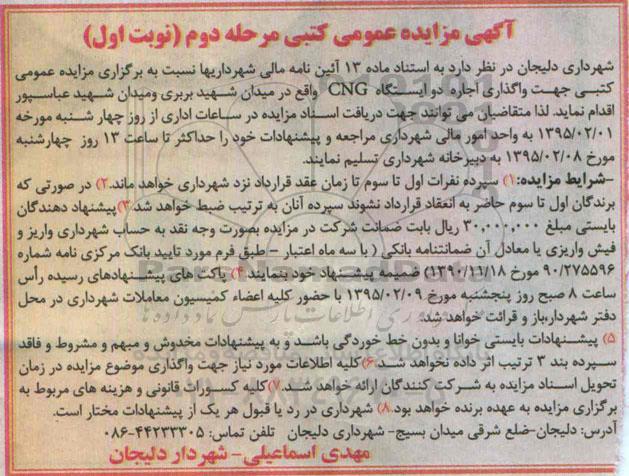 آگهی مزایده عمومی کتبی مرحله دوم (نوبت اول)
شهرداری دلیجان در نظر دارد به استناد ماده ۱۳ آئین نامه مالی شهرداریها نسبت به برگزاری مزایده عمومی
کتبی جهت واگذاری اجاره دو ایستگاه CNG واقع در میدان شهید بربری ومیدان شهید عباسپور
اقدام نماید. لذا متقاضیان می توانند جهت دریافت اسناد مزایده در ساعات اداری از روز چهار شنبه مورخه
۱۳۹۵/۰۲/۰۱ به واحد امور مالی شهرداری مراجعه و پیشنهادات خود را حداکثر تا ساعت ۱۳ روز چهارشنبه
مورخ ۱۳۹۵/۰۲/۰۸ به دبیرخانه شهرداری تسلیم نمایند.
-شرایط مزایده: ۱) سپرده نفرات اول تا سوم تا زمان عقد قرارداد نزد شهرداری خواهد ماند.۲) در صورتی که
برندگان اول تا سوم حاضر به انعقاد قرارداد نشوند سپرده آنان به ترتیب ضبط خواهد شد.۳)پیشنهاد دهندگان
بایستی مبلغ ۳۰,۰۰۰,۰۰۰ ریال بابت ضمانت شرکت در مزایده بصورت وجه نقد به حساب شهرداری واریز و
فیش واریزی یا معادل آن ضمانتنامه بانکی ( با سه ماه اعتبار - طبق فرم مورد تایید بانک مرکزی نامه شماره
۹۰/۲۷۵۵۹۶ مورخ ۱۳۹۰/۱۱/۱۸) ضمیمه پیشنهاد خود بنمایند.۴) پاکت های پیشنهادهای رسیده رأس
ساعت ۸ صبح روز پنجشنبه مورخ ۱۳۹۵/۰۲/۰۹ با حضور کلیه اعضاء کمیسیون معاملات شهرداری در محل
دفتر شهردار،باز و قرائت خواهد شد.
۵) پیشنهادات بایستی خوانا و بدون خط خوردگی باشد و به پیشنهادات مخدوش و مبهم و مشروط و فاقد
سپرده بند ۳ ترتیب اثر داده نخواهد شد.۶)کلیه اطلاعات مورد نیاز جهت واگذاری موضوع مزایده در زمان
تحویل اسناد مزایده به شرکت کنندگان ارائه خواهد شد.۷)کلیه کسورات قانونی و هزینه های مربوط به
برگزاری مزایده به عهده برنده خواهد بود.۸) شهرداری در رد یا قبول هر یک از پیشنهادات مختار است.
آدرس: دلیجان-ضلع شرقی میدان بسیج- شهرداری دلیجان تلفن تماس: ۴۴۲۳۳۳۰۵-۰۸۶
مهدی اسماعیلی- شهردار دلیجان